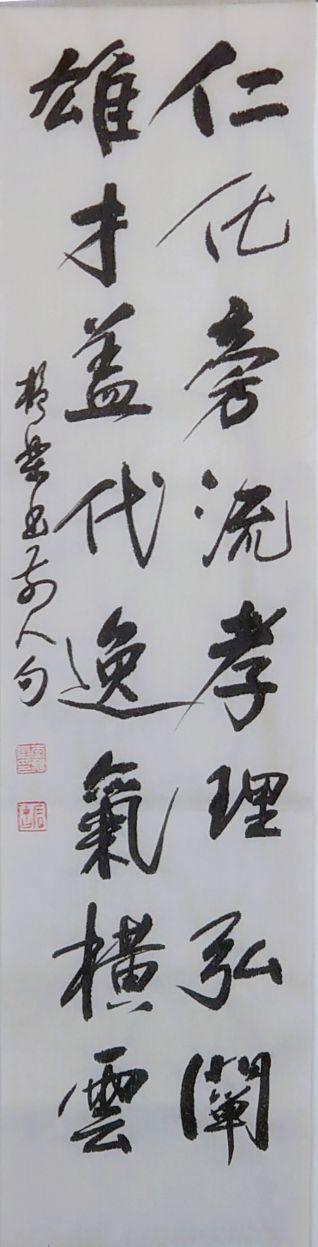 仁化旁流孝理弘闡
雄才蓋代逸氣橫雲
書前人句